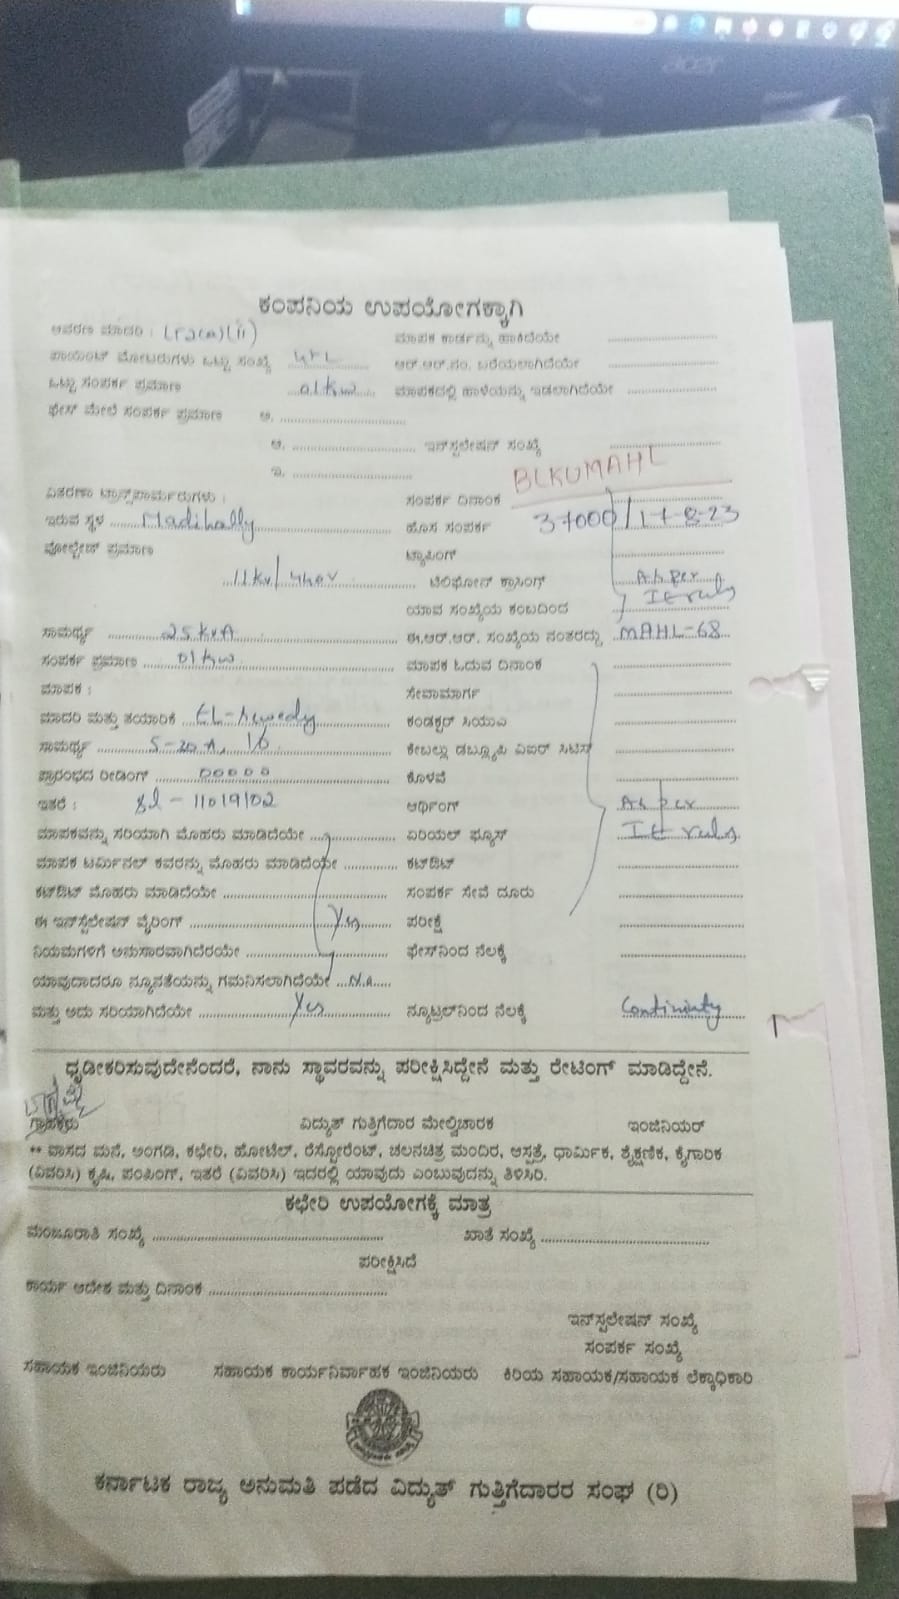 acer
ಕಂಪನಿಯ ಉಪಯೋಗಕ್ಕಾಗಿ
ಆವರಣ ಮಾದರಿ : ಮಾಪಕ ಕಾರ್ಡನ್ನು ಹಾಕಿದೆಯೇ
ಪಾಯಿಂಟ್ ಮೋಟರುಗಳು ಒಟ್ಟು ಸಂಖ್ಯೆ ಆರ್.ಆರ್.ನಂ. ಬರೆಯಲಾಗಿದೆಯೇ
ಒಟ್ಟು ಸಂಪರ್ಕ ಪ್ರಮಾಣ 01kw ಮಾಪಕದಲ್ಲಿ ಹಾಳೆಯನ್ನು ಇಡಲಾಗಿದೆಯೇ
ಫೇಸ್ ಮೇಲೆ ಸಂಪರ್ಕ ಪ್ರಮಾಣ ಅ.
ಆ. ಇನ್‌ಸ್ಟಲೇಷನ್ ಸಂಖ್ಯೆ
ಇ. BLKUMAHL
ವಿತರಣಾ ಟ್ರಾನ್ಸ್‌ಫಾರ್ಮರುಗಳು : ಸಂಪರ್ಕ ದಿನಾಂಕ
ಇರುವ ಸ್ಥಳ Madihally ಹೊಸ ಸಂಪರ್ಕ 37000/17-8-23
ವೋಲ್ಟೇಜ್ ಪ್ರಮಾಣ ಟ್ಯಾಪಿಂಗ್
11kv/ ಟೆಲಿಫೋನ್ ಕ್ರಾಸಿಂಗ್ As per
ಯಾವ ಸಂಖ್ಯೆಯ ಕಂಬದಿಂದ IE rules
ಸಾಮರ್ಥ್ಯ 25kvA ಈ.ಆರ್.ಆರ್. ಸಂಖ್ಯೆಯ ನಂತರದ್ದು MAHL-68
ಸಂಪರ್ಕ ಪ್ರಮಾಣ 01kw ಮಾಪಕ ಓದುವ ದಿನಾಂಕ
ಮಾಪಕ : ಸೇವಾಮಾರ್ಗ
ಮಾದರಿ ಮತ್ತು ತಯಾರಿಕೆ ಕಂಡಕ್ಟರ್ ಸಿಯುಎ
ಸಾಮರ್ಥ್ಯ 5-20A, ಕೇಬಲ್ಲು ಡಬ್ಲ್ಯೂಪಿ ವಿಐಆರ್ ಸಿಟಿಸ್
ಪ್ರಾರಂಭದ ರೀಡಿಂಗ್ 00000 ಕೊಳವೆ
ಇತರೆ : sl - 11019102 ಆರ್ಥಿಂಗ್ As per
ಮಾಪಕವನ್ನು ಸರಿಯಾಗಿ ಮೊಹರು ಮಾಡಿದೆಯೇ ಏರಿಯಲ್ ಫ್ಯೂಸ್ IE rules
ಮಾಪಕ ಟರ್ಮಿನಲ್ ಕವರನ್ನು ಮೊಹರು ಮಾಡಿದೆಯೇ ಕಟ್‌ಔಟ್
ಕಟ್‌ಔಟ್ ಮೊಹರು ಮಾಡಿದೆಯೇ ಸಂಪರ್ಕ ಸೇವೆ ದೂರು
ಈ ಇನ್‌ಸ್ಟಲೇಷನ್ ವೈರಿಂಗ್ Yes ಪರೀಕ್ಷೆ
ನಿಯಮಗಳಿಗೆ ಅನುಸಾರವಾಗಿದೆರಯೇ ಫೇಸ್‌ನಿಂದ ನೆಲಕ್ಕೆ
ಯಾವುದಾದರೂ ನ್ಯೂನತೆಯನ್ನು ಗಮನಿಸಲಾಗಿದೆಯೇ N.A
ಮತ್ತು ಅದು ಸರಿಯಾಗಿದೆಯೇ Yes ನ್ಯೂಟ್ರಲ್‌ನಿಂದ ನೆಲಕ್ಕೆ Continuty
ಧೃಡೀಕರಿಸುವುದೇನೆಂದರೆ, ನಾನು ಸ್ಥಾವರವನ್ನು ಪರೀಕ್ಷಿಸಿದ್ದೇನೆ ಮತ್ತು ರೇಟಿಂಗ್ ಮಾಡಿದ್ದೇನೆ.
ಗ್ರಾಹಕರು ವಿದ್ಯುತ್ ಗುತ್ತಿಗೆದಾರ ಮೇಲ್ವಿಚಾರಕ ಇಂಜಿನಿಯರ್
** ವಾಸದ ಮನೆ, ಅಂಗಡಿ, ಕಛೇರಿ, ಹೋಟೆಲ್, ರೆಸ್ಟೋರೆಂಟ್, ಚಲನಚಿತ್ರ ಮಂದಿರ, ಆಸ್ಪತ್ರೆ, ಧಾರ್ಮಿಕ, ಶೈಕ್ಷಣಿಕ, ಕೈಗಾರಿಕ
(ವಿವರಿಸಿ) ಕೃಷಿ, ಪಂಪಿಂಗ್, ಇತರೆ (ವಿವರಿಸಿ) ಇದರಲ್ಲಿ ಯಾವುದು ಎಂಬುವುದನ್ನು ತಿಳಿಸಿರಿ.
ಕಛೇರಿ ಉಪಯೋಗಕ್ಕೆ ಮಾತ್ರ
ಮಂಜೂರಾತಿ ಸಂಖ್ಯೆ ಖಾತೆ ಸಂಖ್ಯೆ
ಪರೀಕ್ಷಿಸಿದೆ
ಕಾರ್ಯ ಆದೇಶ ಮತ್ತು ದಿನಾಂಕ
ಇನ್‌ಸ್ಟಲೇಷನ್ ಸಂಖ್ಯೆ
ಸಂಪರ್ಕ ಸಂಖ್ಯೆ
ಸಹಾಯಕ ಇಂಜಿನಿಯರು ಸಹಾಯಕ ಕಾರ್ಯನಿರ್ವಾಹಕ ಇಂಜಿನಿಯರು ಕಿರಿಯ ಸಹಾಯಕ/ಸಹಾಯಕ ಲೆಕ್ಕಾಧಿಕಾರಿ
ಕರ್ನಾಟಕ ರಾಜ್ಯ ಅನುಮತಿ ಪಡೆದ ವಿದ್ಯುತ್ ಗುತ್ತಿಗೆದಾರರ ಸಂಘ (ರಿ)